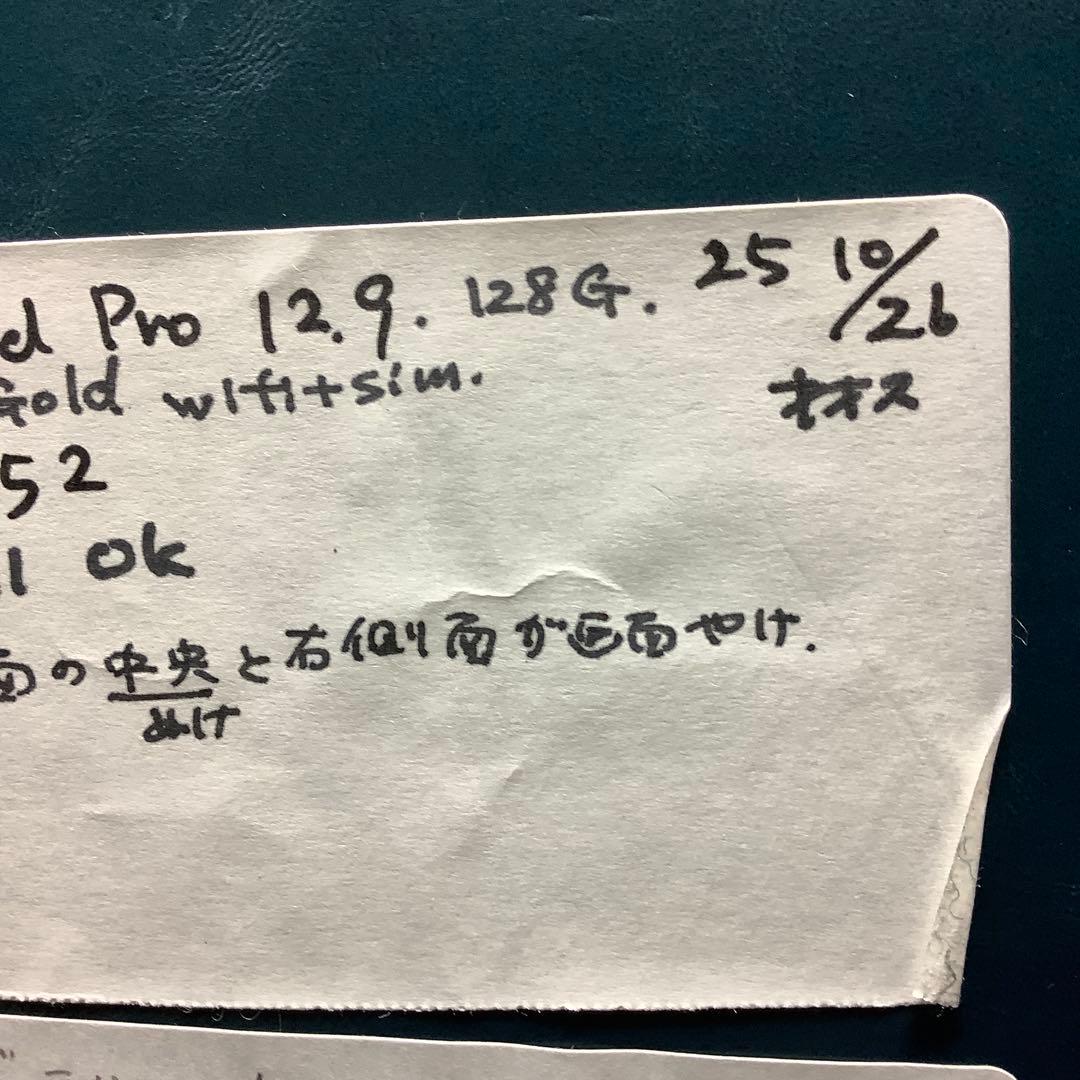 d Pro 12.9. 128G. 25 10/26
Gold wifi+sim. オオス
52
1 ok
面の中央と右側面が画面やけ.